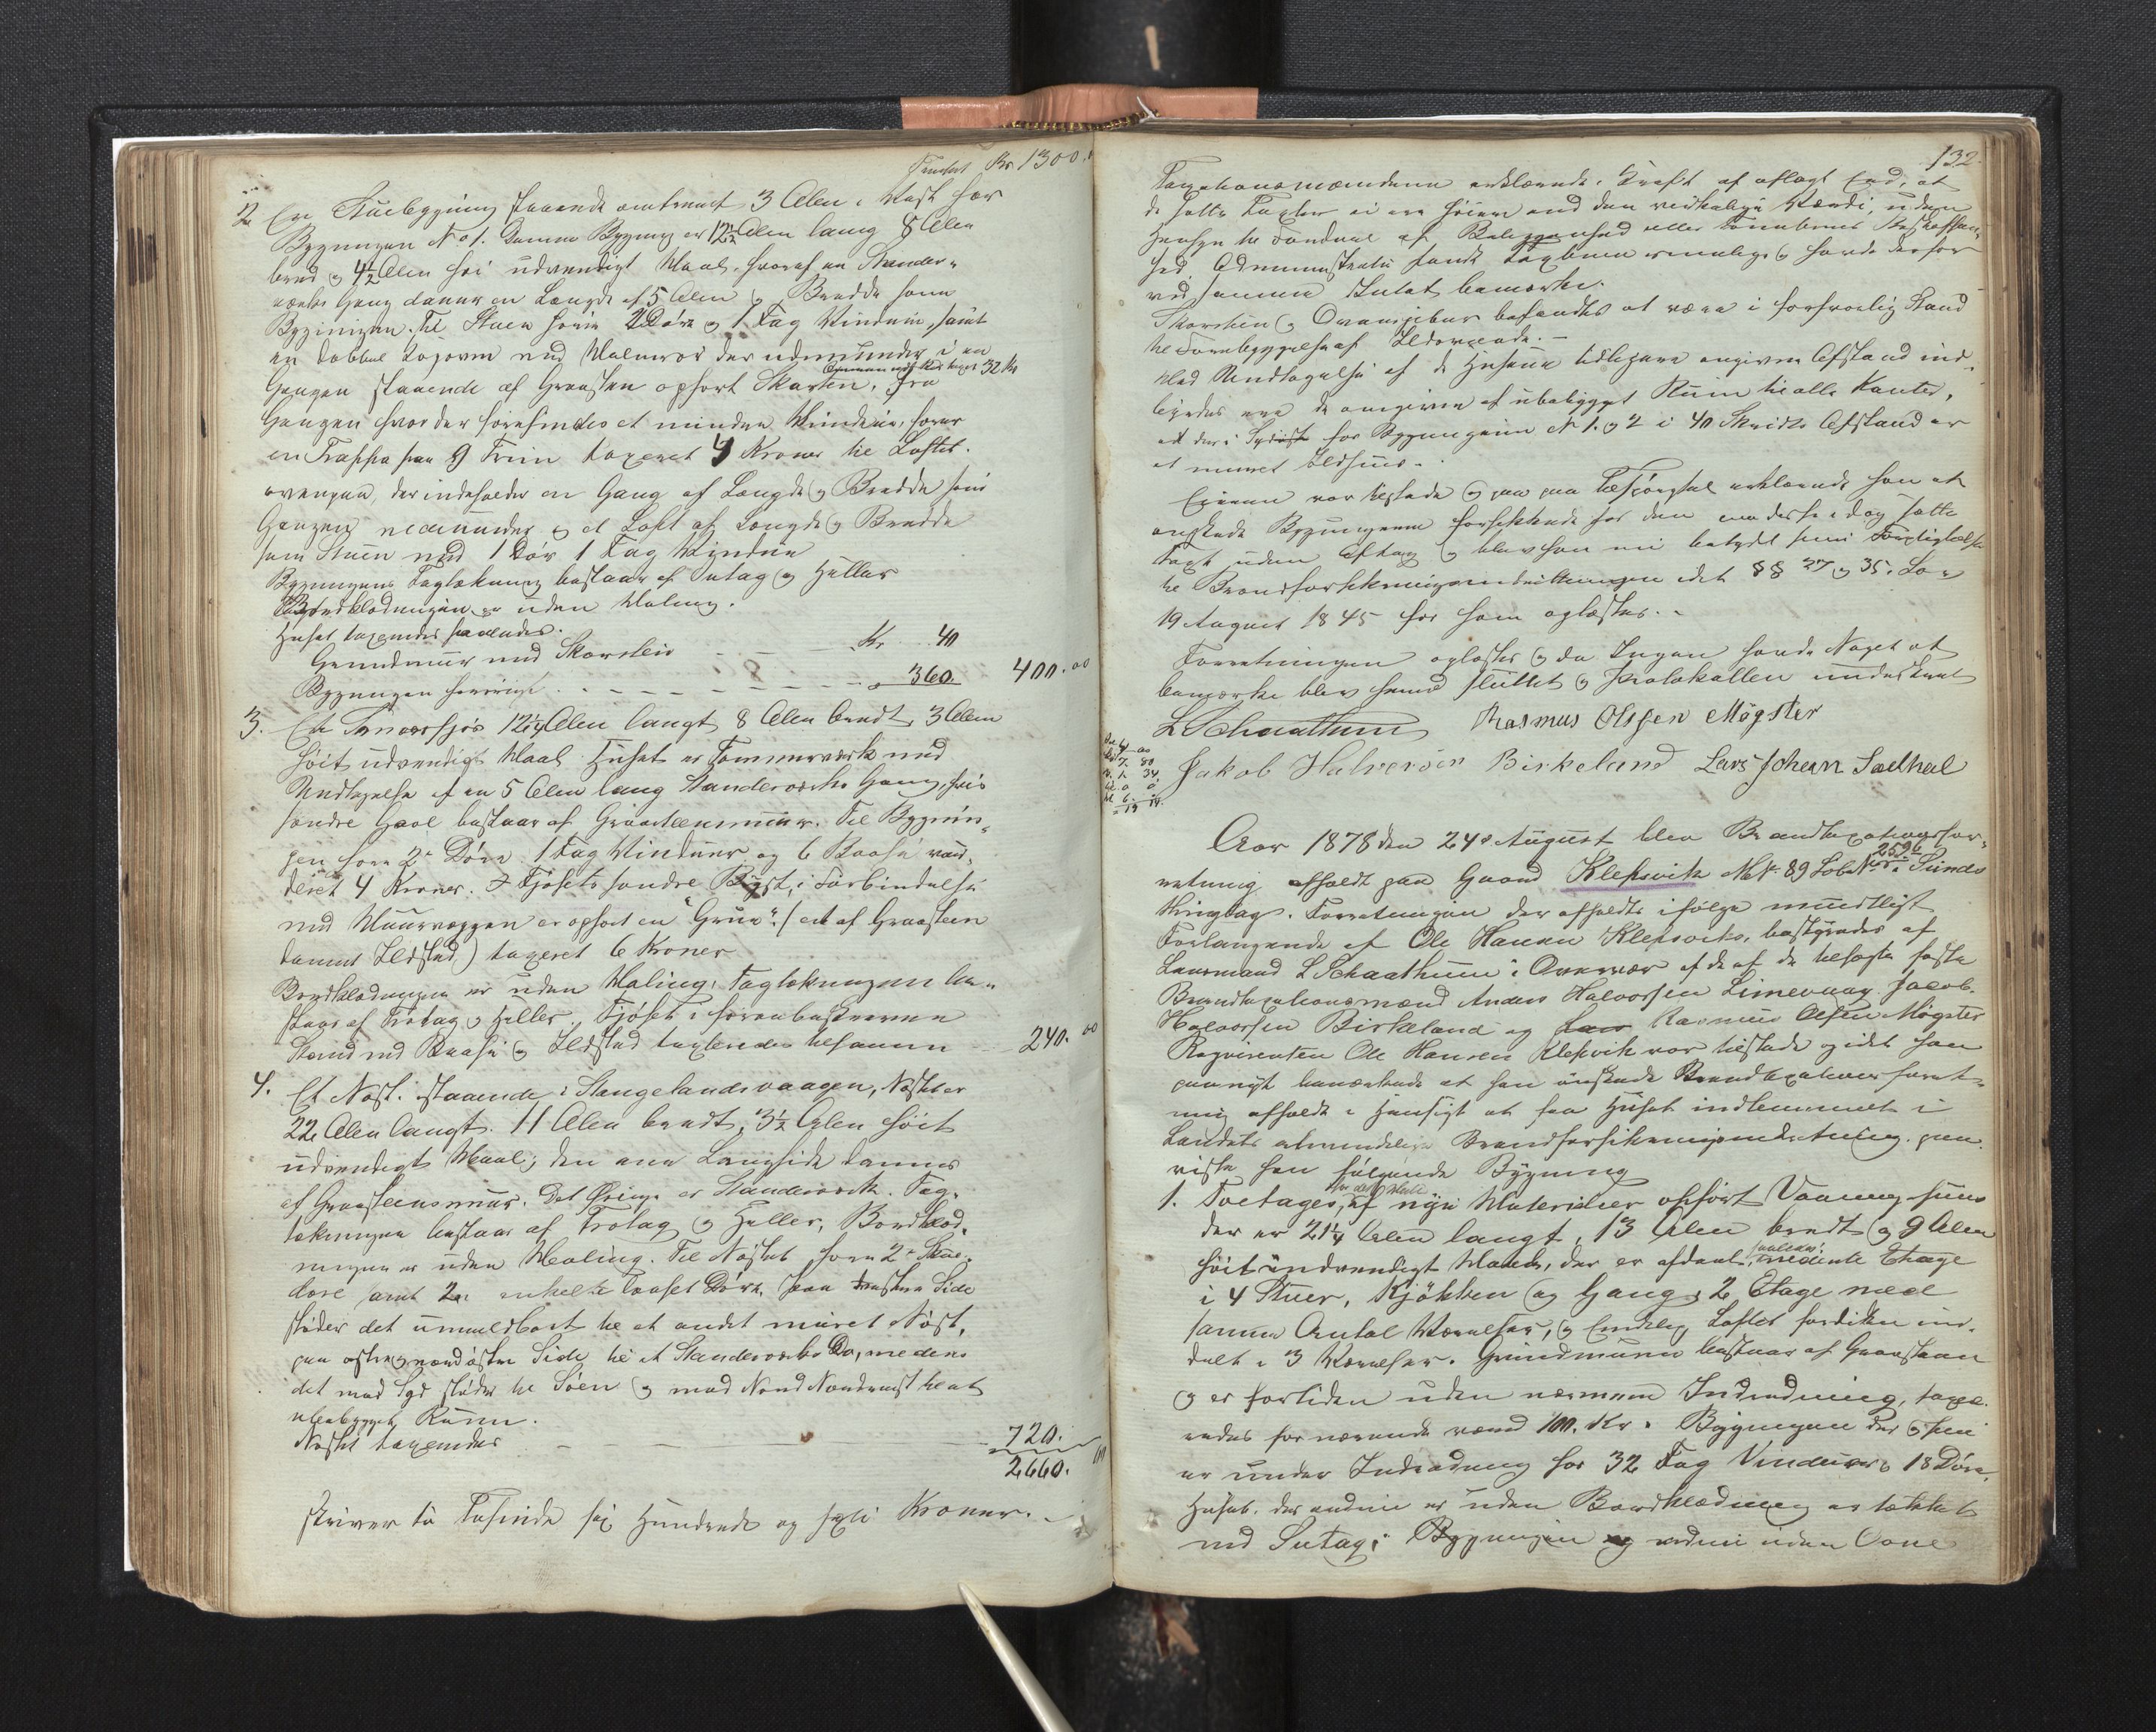 Transport Kr 1300.
2 En Stuebygning staaende omtrent 3 Alen i Vest for
Bygningen No 1. Denne Bygning er 12½ Alen lang 8 Alen
bred og 4½ Alen høi udvendigt Maal, hvoraf en Stender-
værks Gang danner en Længde af 5 Alen og Bredde som
Bygningen. Til Stuen hører 2 Døre og 1 Fag Vinduer, samt
en dobbel Kogeovn med Malmrør der udmunder i en
Ovnen med Rør taxt 32 Kr
Gangen staaende af Graasten opført Skorsten. Fra
Gangen hvor der forefindes et mindre Vindue, fører
en Trappe paa 9 Trin taxeret 4 Kroner til Loftet
ovenpaa, der indeholder en Gang af Længde og Bredde som
Gangen nedenunder og et Loft af Længde og Bredde
som Stuen med 1 Dør 1 Fag Vindue
Bygningens Taglækning bestaar af Sutag og Heller
Bordklædningen er uden Maling.
Huset taxeredes saaledes.
Grundmuur med Skorsten Kr. 40
Bygningen forøvrigt 360. 400.00
3. Et Smørfjøs 12¼ Alen langt 8 Alen bredt, 3 Alen
høit udvendigt Maal. Huset er Tømmerværk med
Undtagelse af en 5 Alen lang Standerværks Gang, hvis
søndre Gavl bestaar af Graasteensmuur. Til Bygnin-
gen hører 2 Døre 1 Fag Vinduer og 6 Baase vur-
deret 4 Kroner. I Fjøsets søndre Bist, i Forbindelse
med Muurvæggen er opført en "Grue" (et af Graasteen
dannet Ildsted) taxeret 6 Kroner
Bordklædningen er uden Maling, Taglækningen be-
staar af Trotag og Heller. Fjøset i forenbeskrevne
Stand med Baase og Ildsted taxeredes tilsammen 240.00
4. Et Nøst. staaende i Stangelandsvaagen, Nøstet er
22 Alen langt. 11 Alen bredt, 3½ Alen høit
udvendigt Maal; den ene Langside dannes
af Graasteensmuur. Det Øvrige er Standerværk. Tag-
lækningen bestaar af Trotag og Heller, Bordklæd-
ningen er uden Maling. Til Nøstet hører 2
døre samt 2 enkelte Døre. Paa Side
støder det umiddelbart til et andet muret Nøst,
paa østre og nordøstre Side til et Standerværks Do, medens
det mod Syd støder til Søen og mod Nord Nordvest til et
ubebygget Rum.
Nøstet taxeredes 720.
2660.
skriver to Tusinde sex Hundrede og sexti Kroner.
132.
Taxationsmændene erklærede i Kraft af aflagt Eed, at
de satte Taxter ei ere høiere end den virkelige Værdi, uden
Hensyn til Fordeel af Beliggenhed eller Tomternes Beskaffen-
hed. Administrator fandt Taxterne rimelige og havde derfor
ved samme Intet bemærke.
Skorsten og Ovnsrør befandtes at være i forsvarlig Stand
til Forebyggelse af Ildsvaade.
Med Undtagelse af de Husene tidligere angivne Afstand ind-
byrdes ere de omgivne af ubebygget Rum til alle Kanter,
at der i Sydost for Bygningerne N 1. og 2 i 40 Skridts Afstand er
et muret Ildhuus.
Eieren var tilstede og paa Tilspørgsel erklærede han at
ønskede Bygningerne forsikkrede for den nu derfor i dag satte
Taxt uden Aftag og blev han nu betydet sine Forpligtelser
til Brandforsikringsindretningen idet §§ 27 og 35. Lov
19 August 1845 for ham oplæstes.
Forretningen oplæstes og da Ingen havde Noget at
bemærke blev samme sluttet og Protokollen underskrevet
L Schaathun Rasmus Olssen Møgster
Jakob Halversen Birkeland Lars Johan Sælhal
Aar 1878 den 24de August blev Brandtaxationsfor-
retning afholdt paa Gaard Klepsvik Mt. 89 Løb. No 259b i Sunds
Thinglag. Forretningen der afholdtes ifølge mundtligt
Forlangende af Ole Hansen Klepsviks, bestyredes af
Lensmand L Schaathun i Overvær af de af de beskikkede faste
Brandtaxationsmænd Anders Halvorsen Limevaag, Jacob
Halvorsen Birkeland og Lars Rasmus Olsen Møgster
Reqvirenten Ole Hansen Klepsvik var tilstede og idet han
paanyt bemærkede at han ønskede Brandtaxationsforret-
ning afholdt i Hensigt at faa Huset indlemmet i
Landets almindelige Brandforsikringsindretning, paa-
viste han følgende Bygning
1. Toetages, for det Meste af nye Materialier opført Vaaningshuus
der er 21¼ Alen langt, 13 Alen bredt og 9 Alen
høit indvendigt Maal, der er afdeelt, saaledes: nederste Etage
i 4 Stuer, Kjøkken og Gang; 2 Etage med
samme Antal Værelser, og Endelig Loftet fordeelt ind-
delt i 3 Værelser. Grundmuren bestaar af Graasteen
og er fortiden uden nærmere Indredning, taxe-
redes for nærværende værd 100. Kr. Bygningen der og som
er under Indredning har 32 Fag Vinduer og 18 Døre.
Huset, der endnu er uden Bordklædning er tækket
med Sutag; Bygningen er endnu uden Ovne